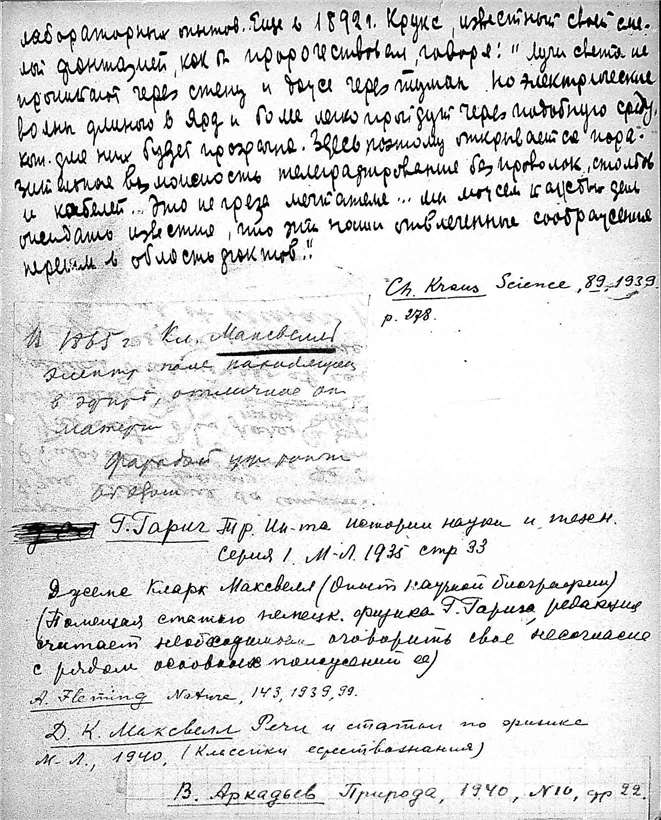 лабораторных опытов. Еще в 1892 г. Крукс, известный своей сме-
лой фантазией, как бы пророчествовал, говоря: "Лучи света не
проникают через стену и даже через туман. Но электрические
волны длиною в ярд и более легко пройдут через подобную среду,
кот. для них будет прозрачна. Здесь поэтому открывается пора-
зительная возможность телеграфирования без проволок, столбов
и кабелей... Это не греза мечтателя... мы можем каждый день
ожидать известие, что эти наши отвлеченные соображения
перешли в область фактов."
Ch. Kraus Science, 89, 1939.
p. 278.
В 1865 г Кл. Максвелл
электр поле находящееся
в эфире, отличное от
материи
Фарадей
Г. Гариг Тр. Ин-та истории науки и техн.
Серия I. М-Л. 1935 стр 33
Джемс Кларк Максвелл (Опыт научной биографии)
(Помещая статью немецк. физика Г. Гарига, редакция
считает необходимым оговорить свое несогласие
с рядом основных положений ее)
A. Fleming Nature, 143, 1939, 99.
Д. К. Максвелл Речи и статьи по физике
М-Л., 1940, (Классики естествознания)
В. Аркадьев Природа, 1940, N10, стр 22.